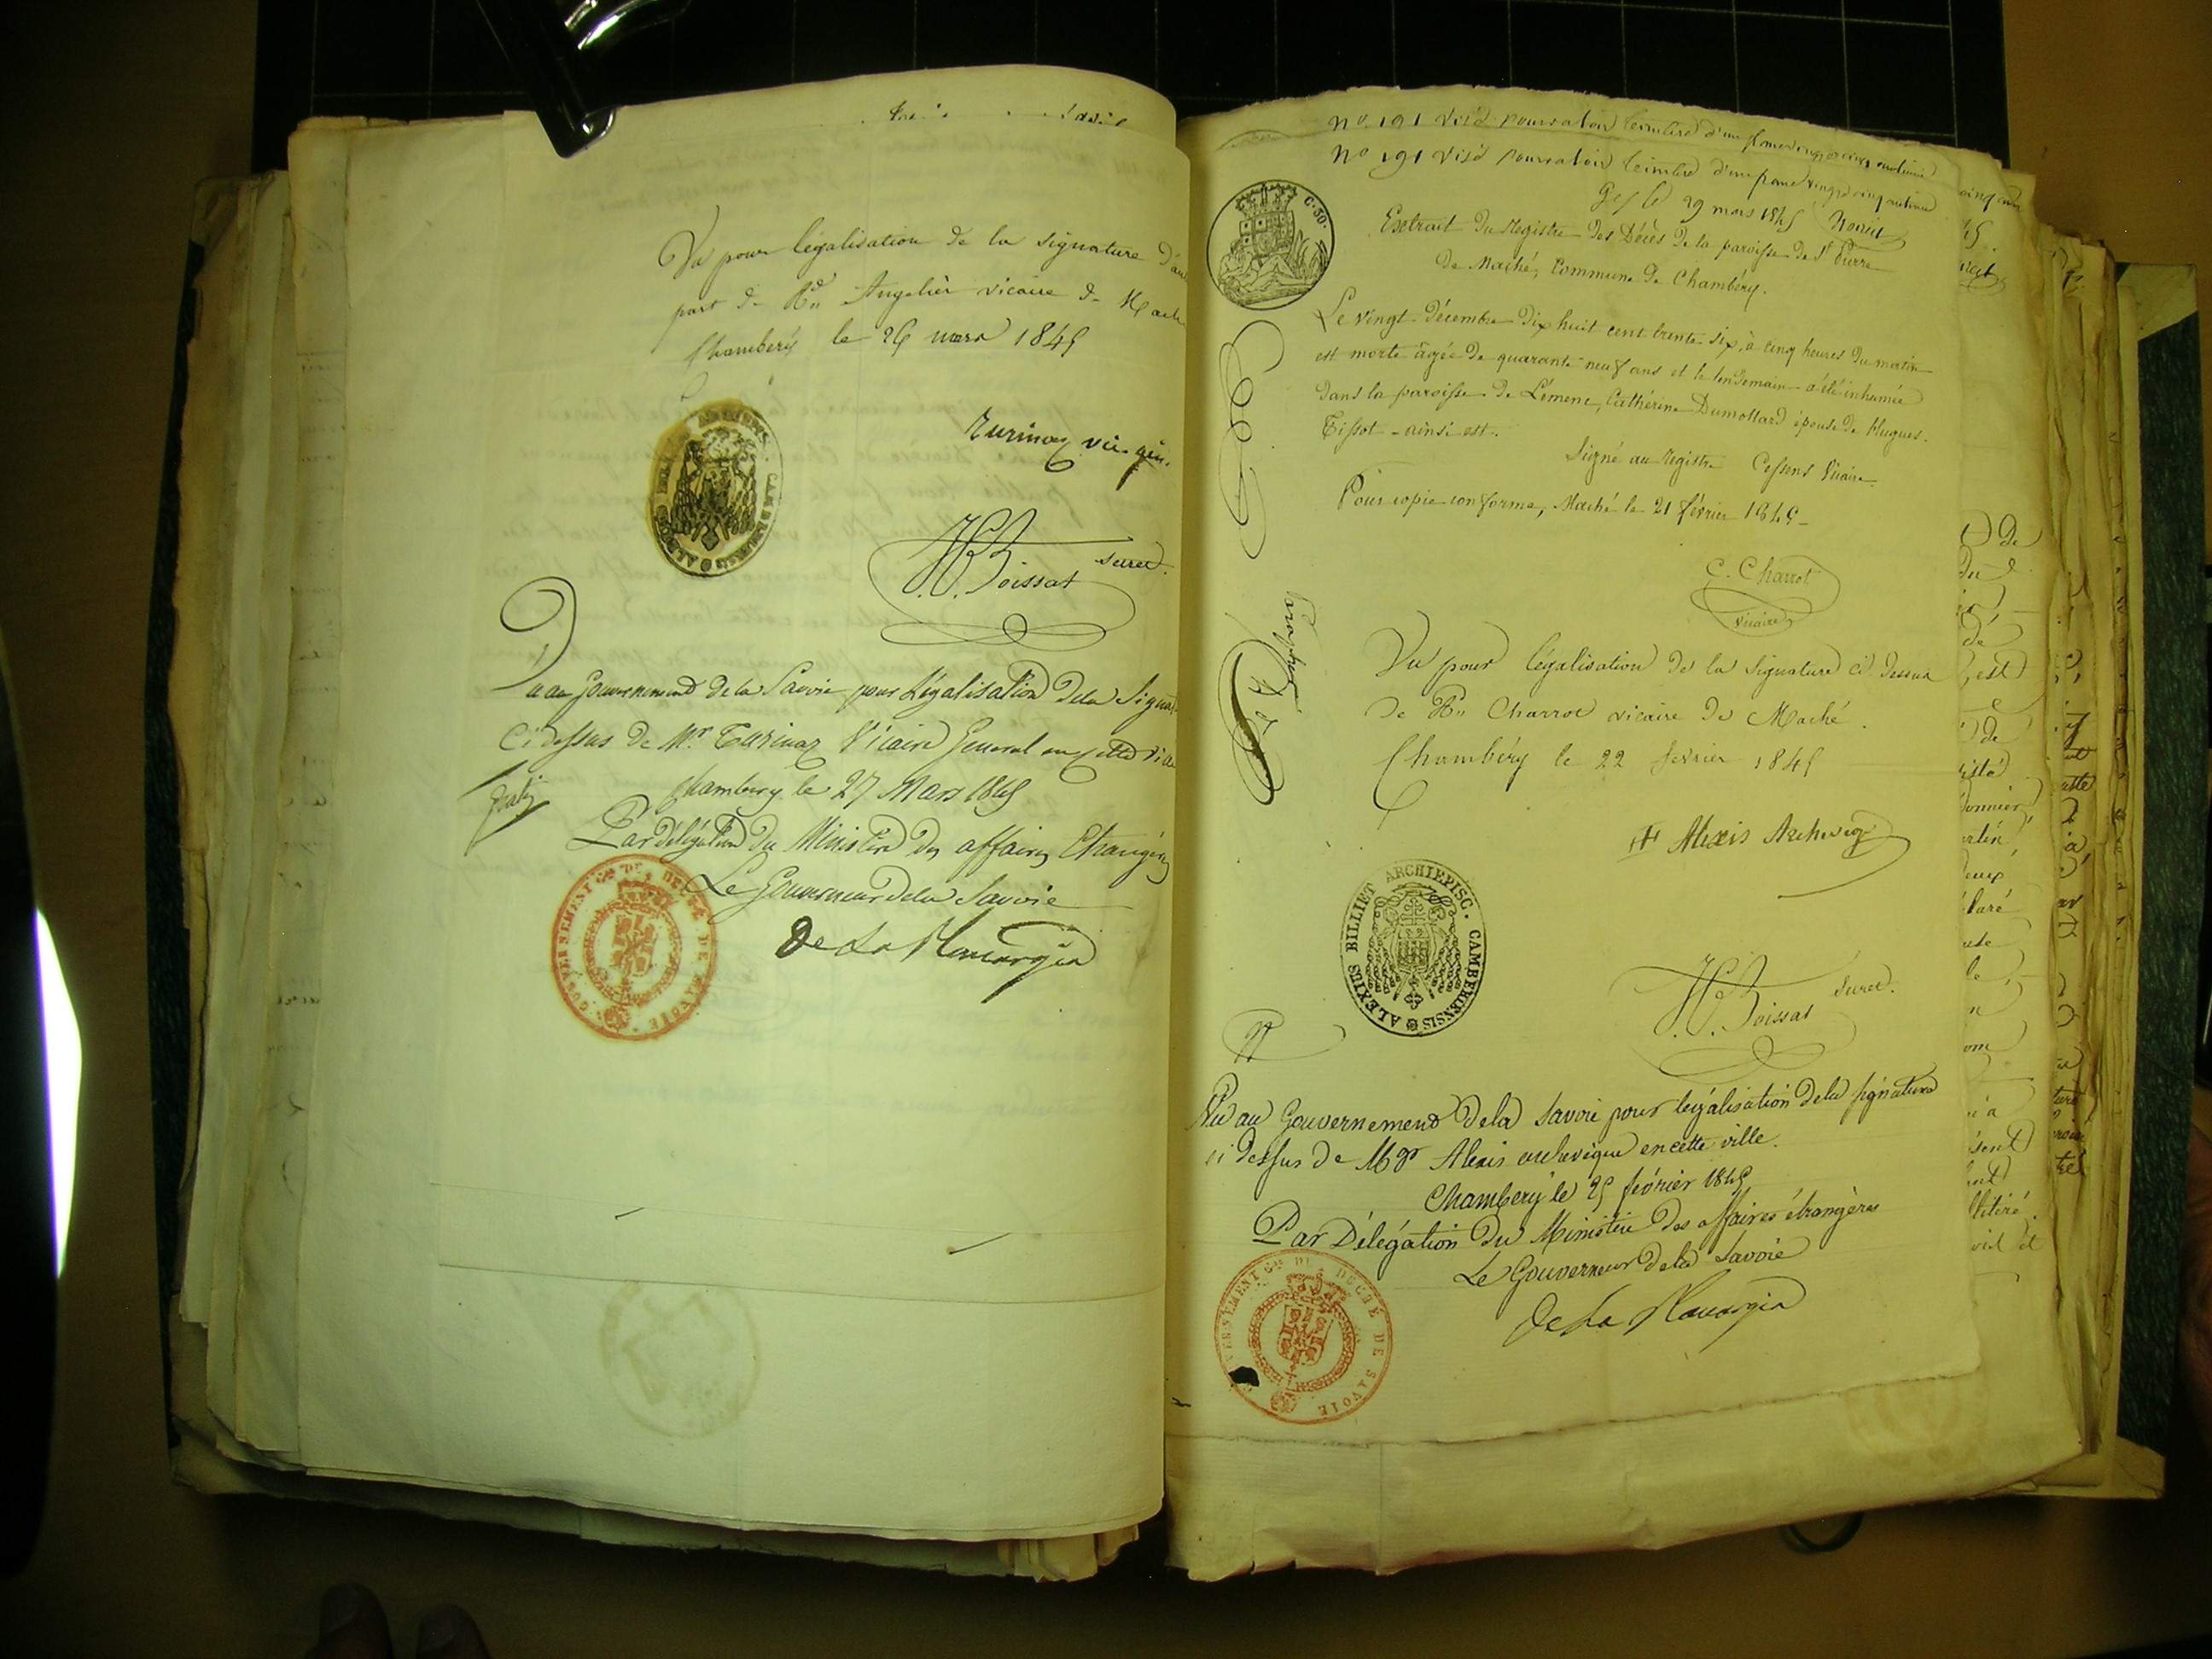 Vu pour légalisation de la signature d'au
part de Rd Angelier vicaire de Maché
Chambéry le 26 mars 1845
Turinaz vic. gén.
Boissat secret.
Vu au Gouvernement de la Savoie pour Légalisation de la Signat
Ci dessus de Mr. Turinaz Vicaire Général en cette ville
Chambéry le 27 Mars 1845
Gratis
Par délégation du Ministère des affaires Etrangères
Le Gouverneur de la Savoie
GOUVERNEMENT Gal DU DUCHÉ DE SAVOIE
No 191 Visé pour valoir timbre d'un franc vingt cinq centimes
No 191 Visé pour valoir timbre d'un franc vingt cinq centimes
le 29 mars 1845
C. 50.
Extrait du Registre des Décès de la paroisse de St Pierre
de Maché, Commune de Chambéry.
Le vingt décembre dix huit cent trente six, à cinq heures du matin
est morte âgée de quarante neuf ans et le lendemain a été inhumée
dans la paroisse de Lémenc, Cathérine Dumollard épouse de Hugues
Tissot - ainsi est.
Signé au registre Cessens Vicaire
Pour copie conforme, Maché le 21 février 1845
C. Charrot
Vicaire
Paraphé
Vu pour légalisation de la signature ci dessus
de Rd Charrot vicaire de Maché.
Chambéry le 22 fevrier 1845
+ Alexis Archevêq
ALEXIUS BILLIET ARCHIEPISC. CAMBERIENSIS
Boissat secret.
Vu au Gouvernement de la Savoie pour legalisation de la signature
ci dessus de Mgr Alexis archevêque en cette ville.
Chambery le 25 février 1845
Par Délégation du Ministère des affaires étrangères
Le Gouverneur de la Savoie
GOUVERNEMENT Gal DU DUCHÉ DE SAVOIE